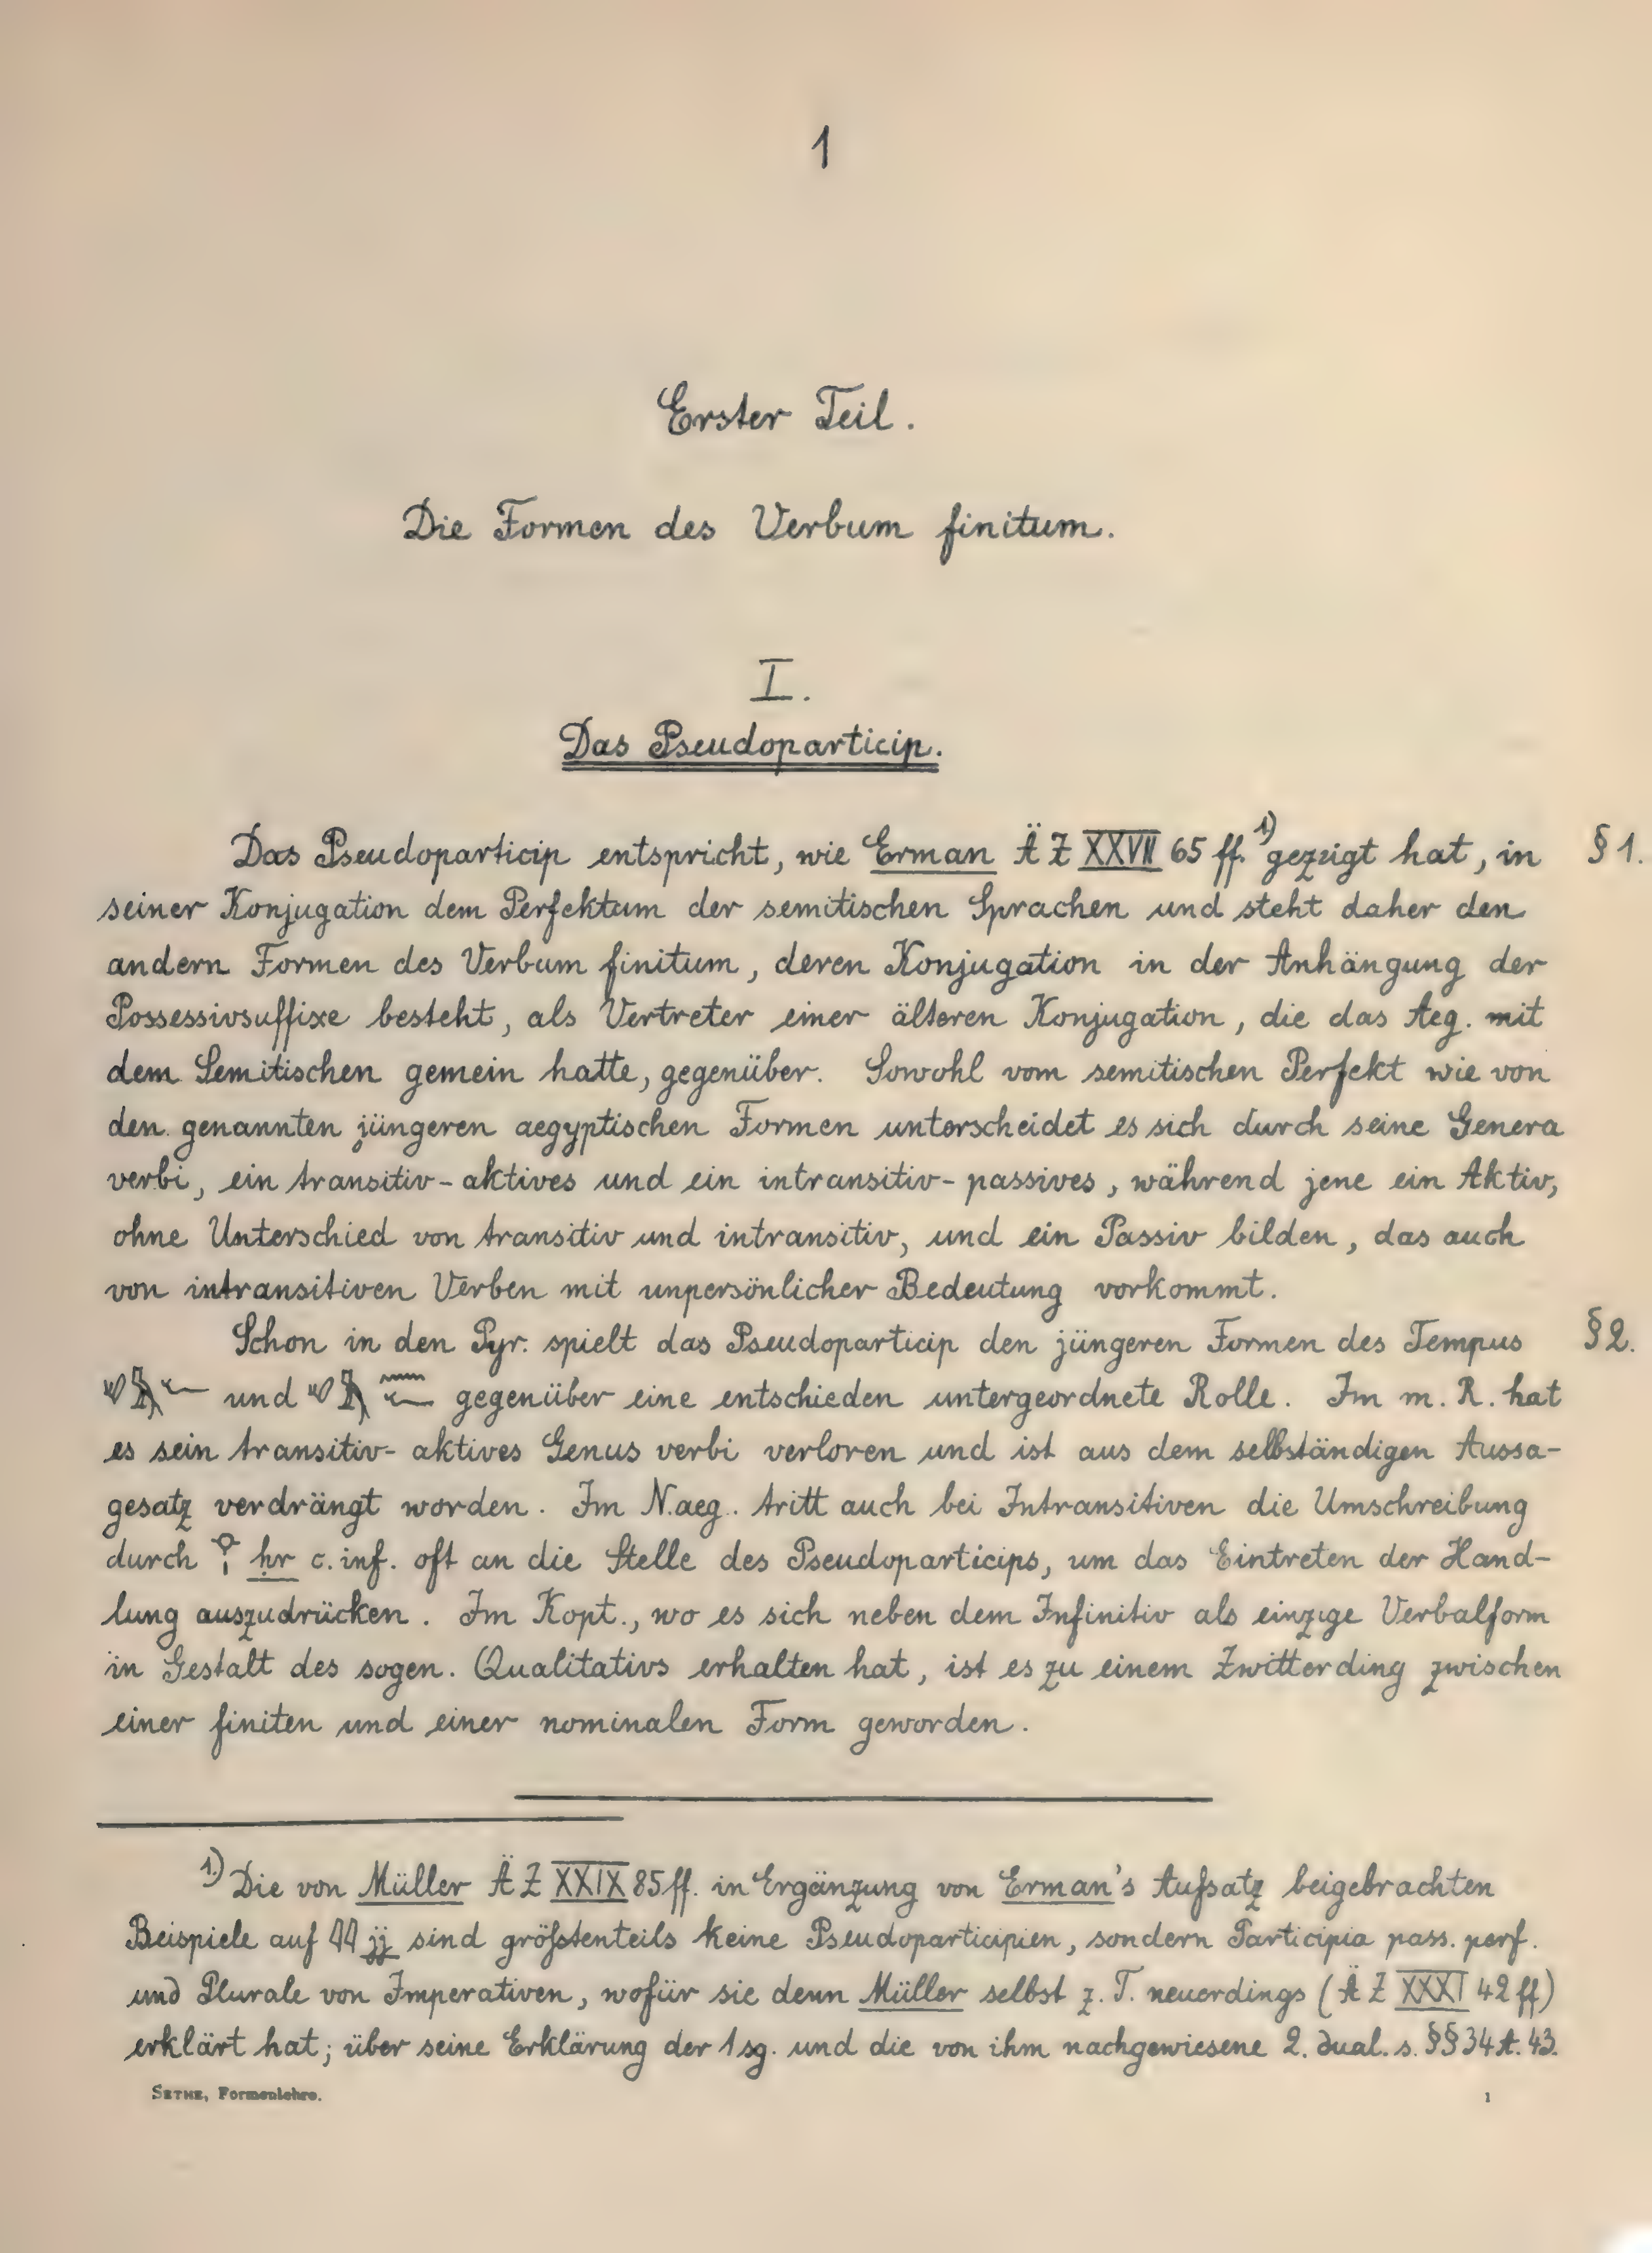 1
Erster Teil.
Die Formen des Verbum finitum.
I.
Das Pseudoparticip.
Das Pseudoparticip entspricht, wie Erman ÄZ XXVII 65 ff.¹⁾ gezeigt hat, in § 1.
seiner Konjugation dem Perfektum der semitischen Sprachen und steht daher den
andern Formen des Verbum finitum, deren Konjugation in der Anhängung der
Possessivsuffixe besteht, als Vertreter einer älteren Konjugation, die das Aeg. mit
dem Semitischen gemein hatte, gegenüber. Sowohl vom semitischen Perfekt wie von
den genannten jüngeren aegyptischen Formen unterscheidet es sich durch seine Genera
verbi, ein transitiv-aktives und ein intransitiv-passives, während jene ein Aktiv,
ohne Unterschied von transitiv und intransitiv, und ein Passiv bilden, das auch
von intransitiven Verben mit unpersönlicher Bedeutung vorkommt.
Schon in den Pyr. spielt das Pseudoparticip den jüngeren Formen des Tempus § 2.
𓄔𓅓𓆑 und 𓄔𓅓𓈖𓆑 gegenüber eine entschieden untergeordnete Rolle. Im m. R. hat
es sein transitiv-aktives Genus verbi verloren und ist aus dem selbständigen Aussa-
gesatz verdrängt worden. Im N.aeg. tritt auch bei Intransitiven die Umschreibung
durch 𓁷𓏤 ḥr c. inf. oft an die Stelle des Pseudoparticips, um das Eintreten der Hand-
lung auszudrücken. Im Kopt., wo es sich neben dem Infinitiv als einzige Verbalform
in Gestalt des sogen. Qualitativs erhalten hat, ist es zu einem Zwitterding zwischen
einer finiten und einer nominalen Form geworden.
¹⁾ Die von Müller ÄZ XXIX 85 ff. in Ergänzung von Erman's Aufsatz beigebrachten
Beispiele auf 𓇋𓇋 jj sind größtenteils keine Pseudoparticipien, sondern Participia pass. perf.
und Plurale von Imperativen, wofür sie denn Müller selbst z. T. neuerdings (ÄZ XXXI 42 ff)
erklärt hat; über seine Erklärung der 1 sg. und die von ihm nachgewiesene 2. dual. s. §§ 34 A. 43.
SETHE, Formenlehre. 1